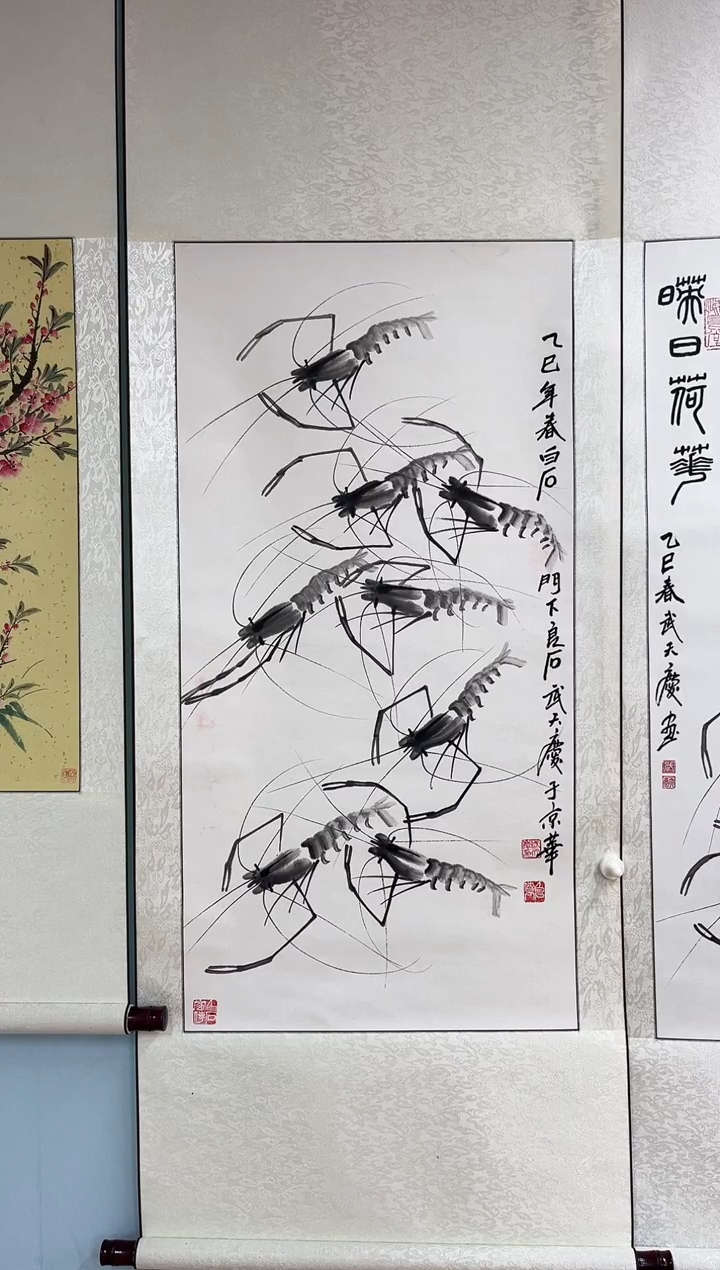 乙巳年春白石
門下良石武大慶于京華
映日荷華
乙巳春武大慶畫